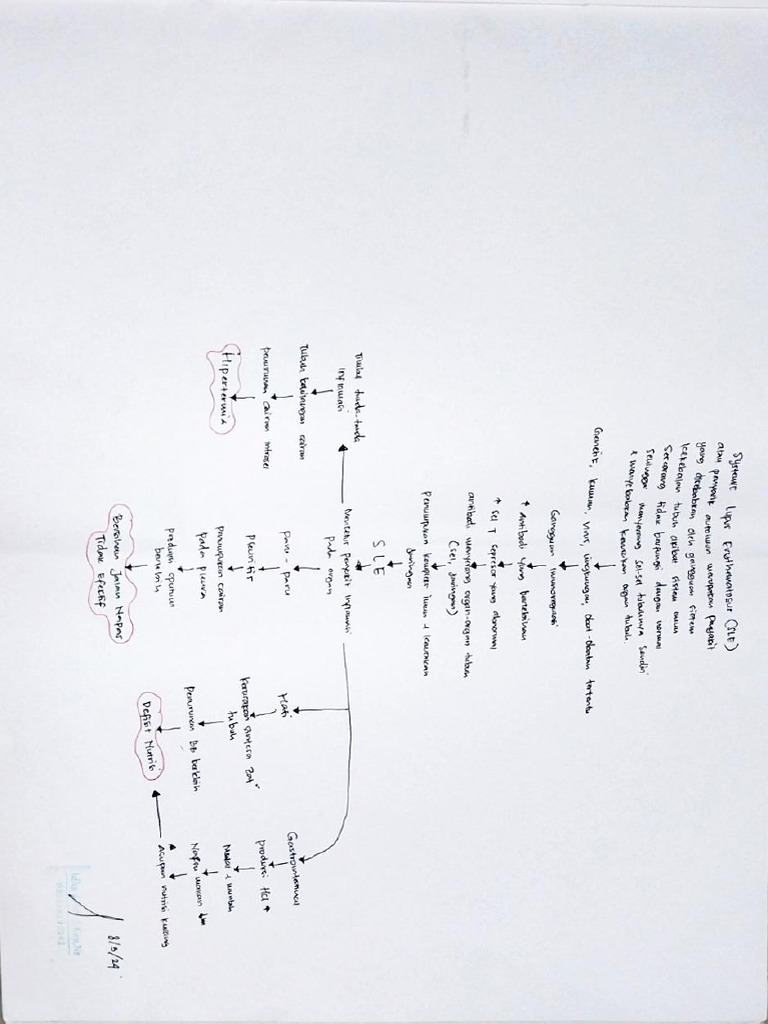 Systemic lupus Erythematosus (SLE)
atau penyakit autoimun merupakan penyakit
yang disebabkan oleh gangguan sistem
kekebalan tubuh akibat sistem imun
seseorang tidak berfungsi dengan normal
sehingga menyerang sel-sel tubuhnya sendiri
& menyebabkan kerusakan organ tubuh.
Genetik, kuman, virus, lingkungan, obat-obatan tertentu
Gangguan imunoregulasi
↑ Antibodi yang berlebihan
↑ sel T supresor yang abnormal
antibodi menyerang organ-organ tubuh
(sel, jaringan)
penumpukan kompleks imun & kerusakan
jaringan
SLE
penyakit inflamasi
pada organ
Timbul tanda-tanda
inflamasi
Tubuh kehilangan cairan
penurunan cairan intrasel
Hipertermia
Paru-paru
Pleuritis
penumpukan cairan
pada pleura
produksi sputum
berlebih
Bersihan Jalan Napas
Tidak Efektif
Hati
Kerusakan sintesa zat²
tubuh
Penurunan BB berlebih
Defisit Nutrisi
Gastrointestinal
produksi HCl ↑
Mual & muntah
Nafsu makan ↓
asupan nutrisi kurang
8/3/24